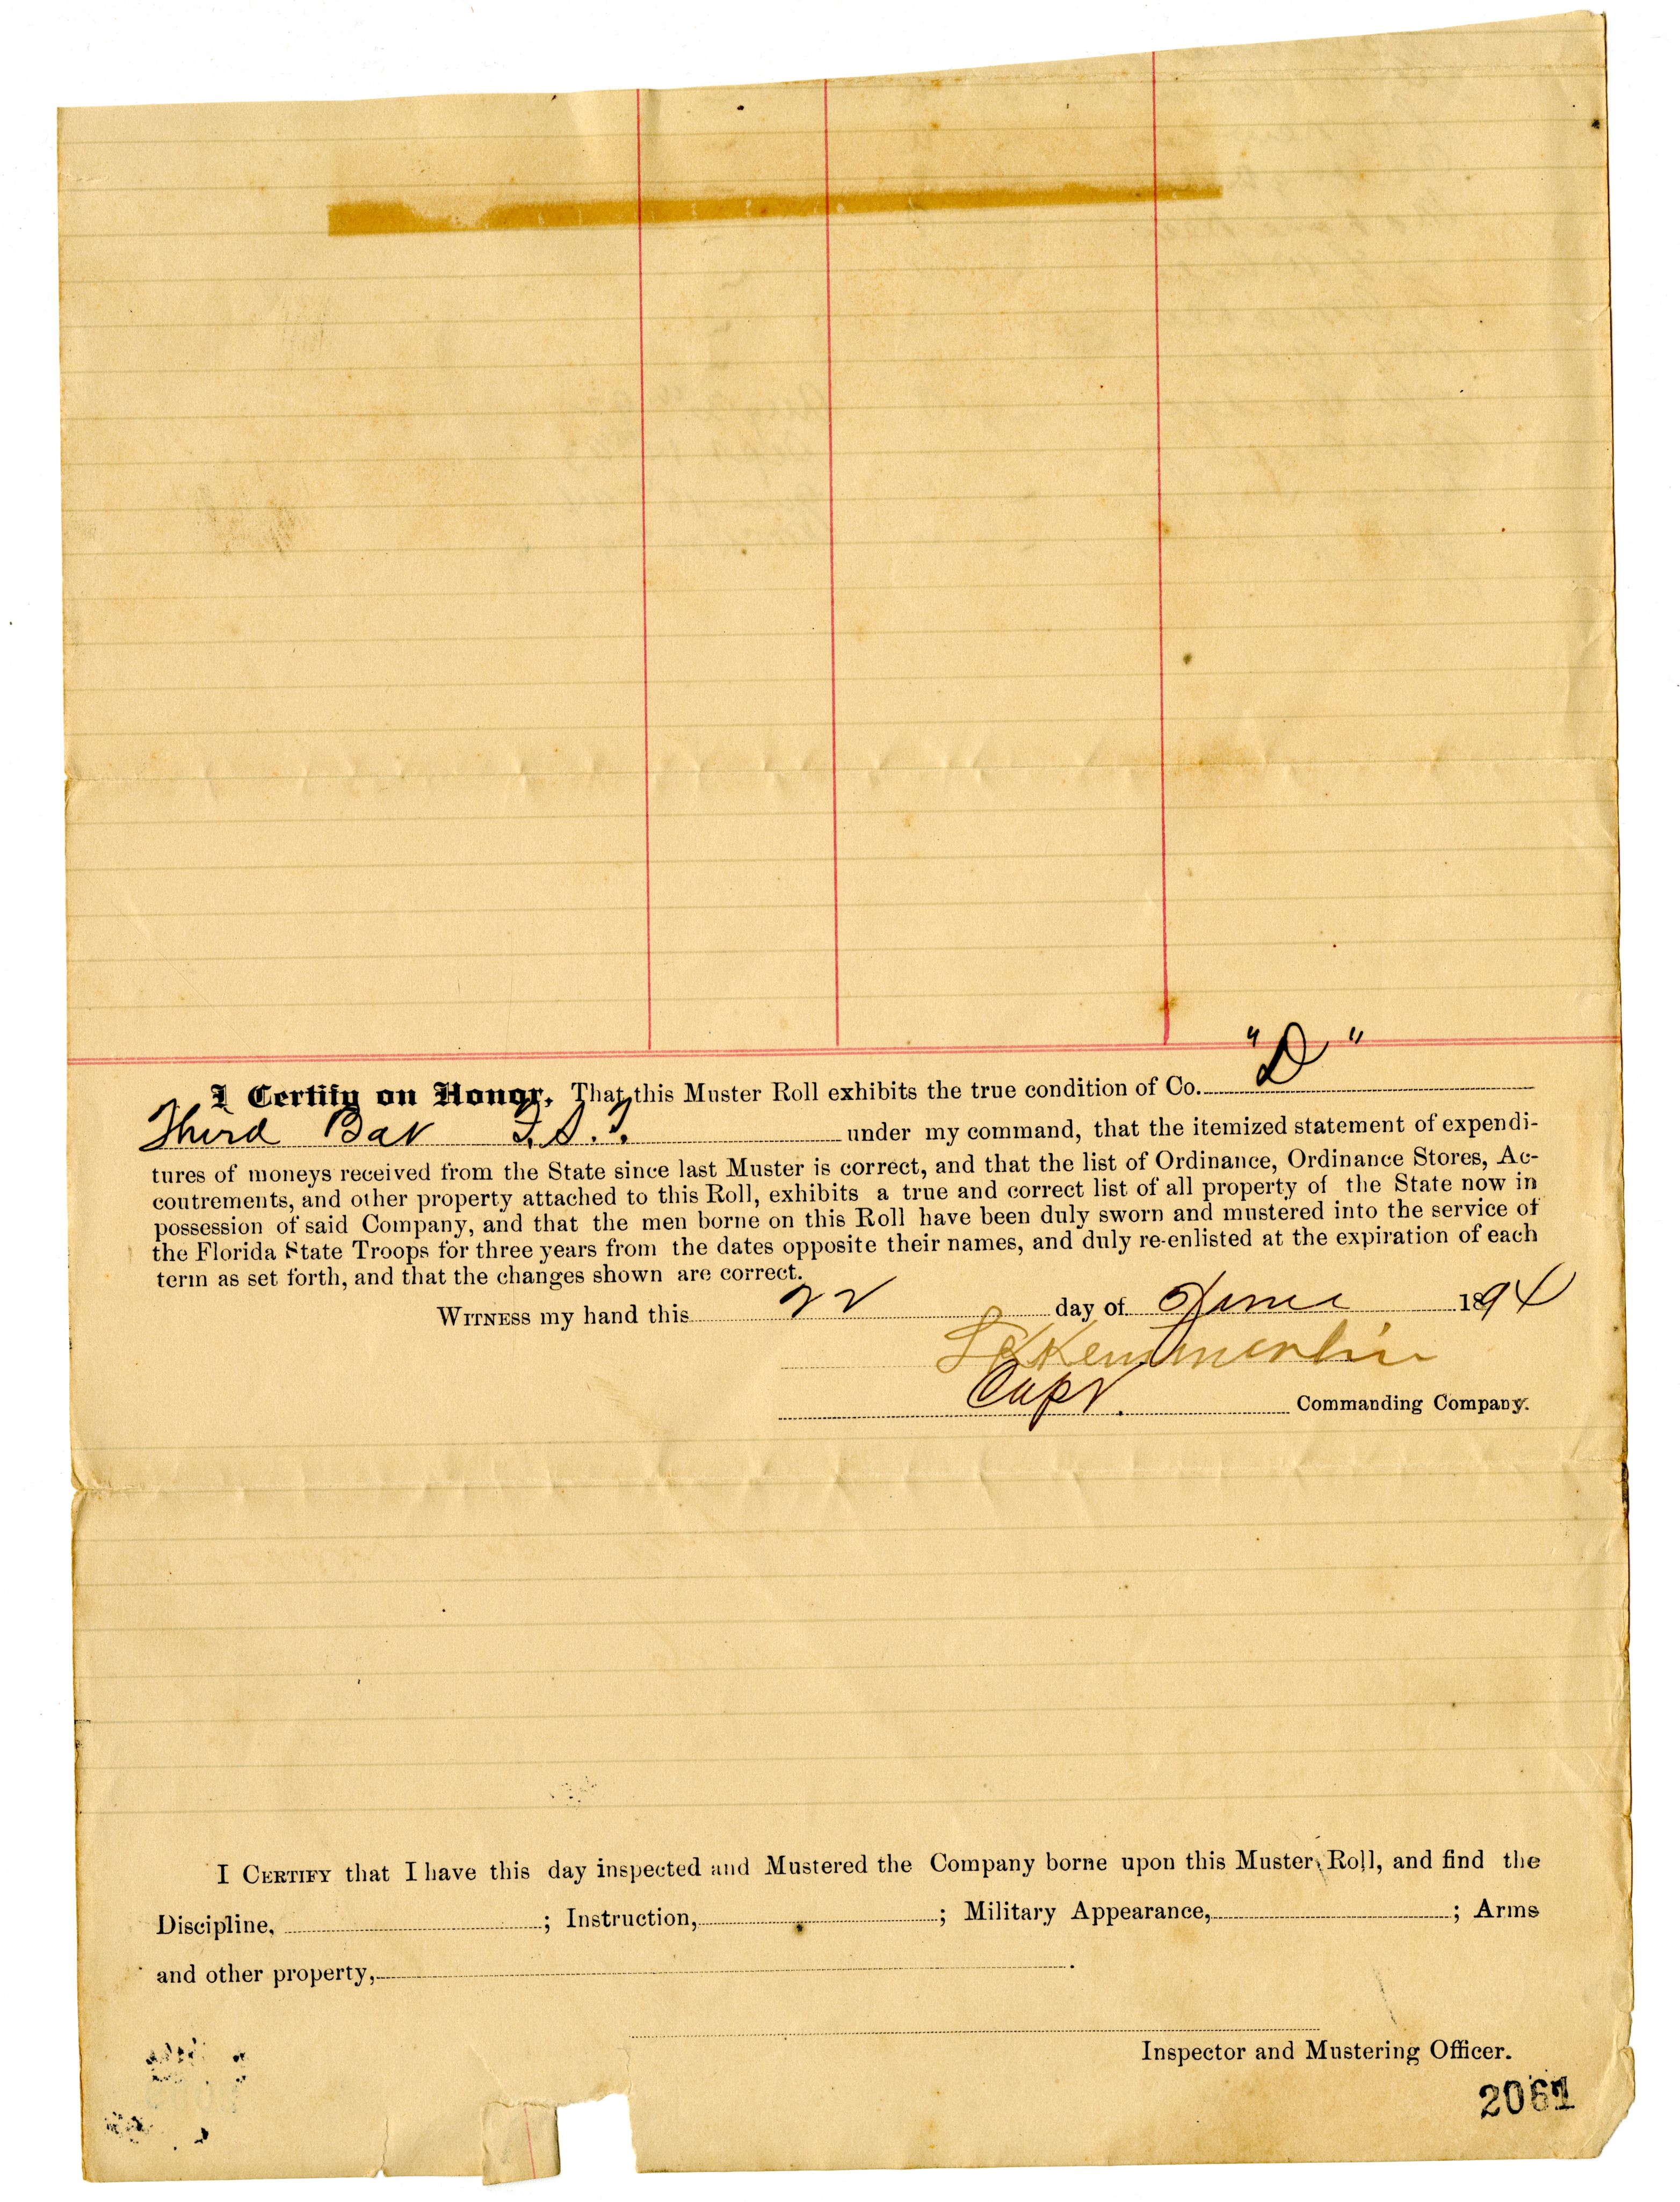 I Certify on Honor, That this Muster Roll exhibits the true condition of Co. "D"
Third Bat F.S.T. under my command, that the itemized statement of expendi-
tures of moneys received from the State since last Muster is correct, and that the list of Ordinance, Ordinance Stores, Ac-
coutrements, and other property attached to this Roll, exhibits a true and correct list of all property of the State now in
possession of said Company, and that the men borne on this Roll have been duly sworn and mustered into the service of
the Florida State Troops for three years from the dates opposite their names, and duly re-enlisted at the expiration of each
term as set forth, and that the changes shown are correct.
WITNESS my hand this 22 day of June 1894
Capt. Commanding Company.
I CERTIFY that I have this day inspected and Mustered the Company borne upon this Muster Roll, and find the
Discipline, ; Instruction, ; Military Appearance, ; Arms
and other property, .
Inspector and Mustering Officer.
2061